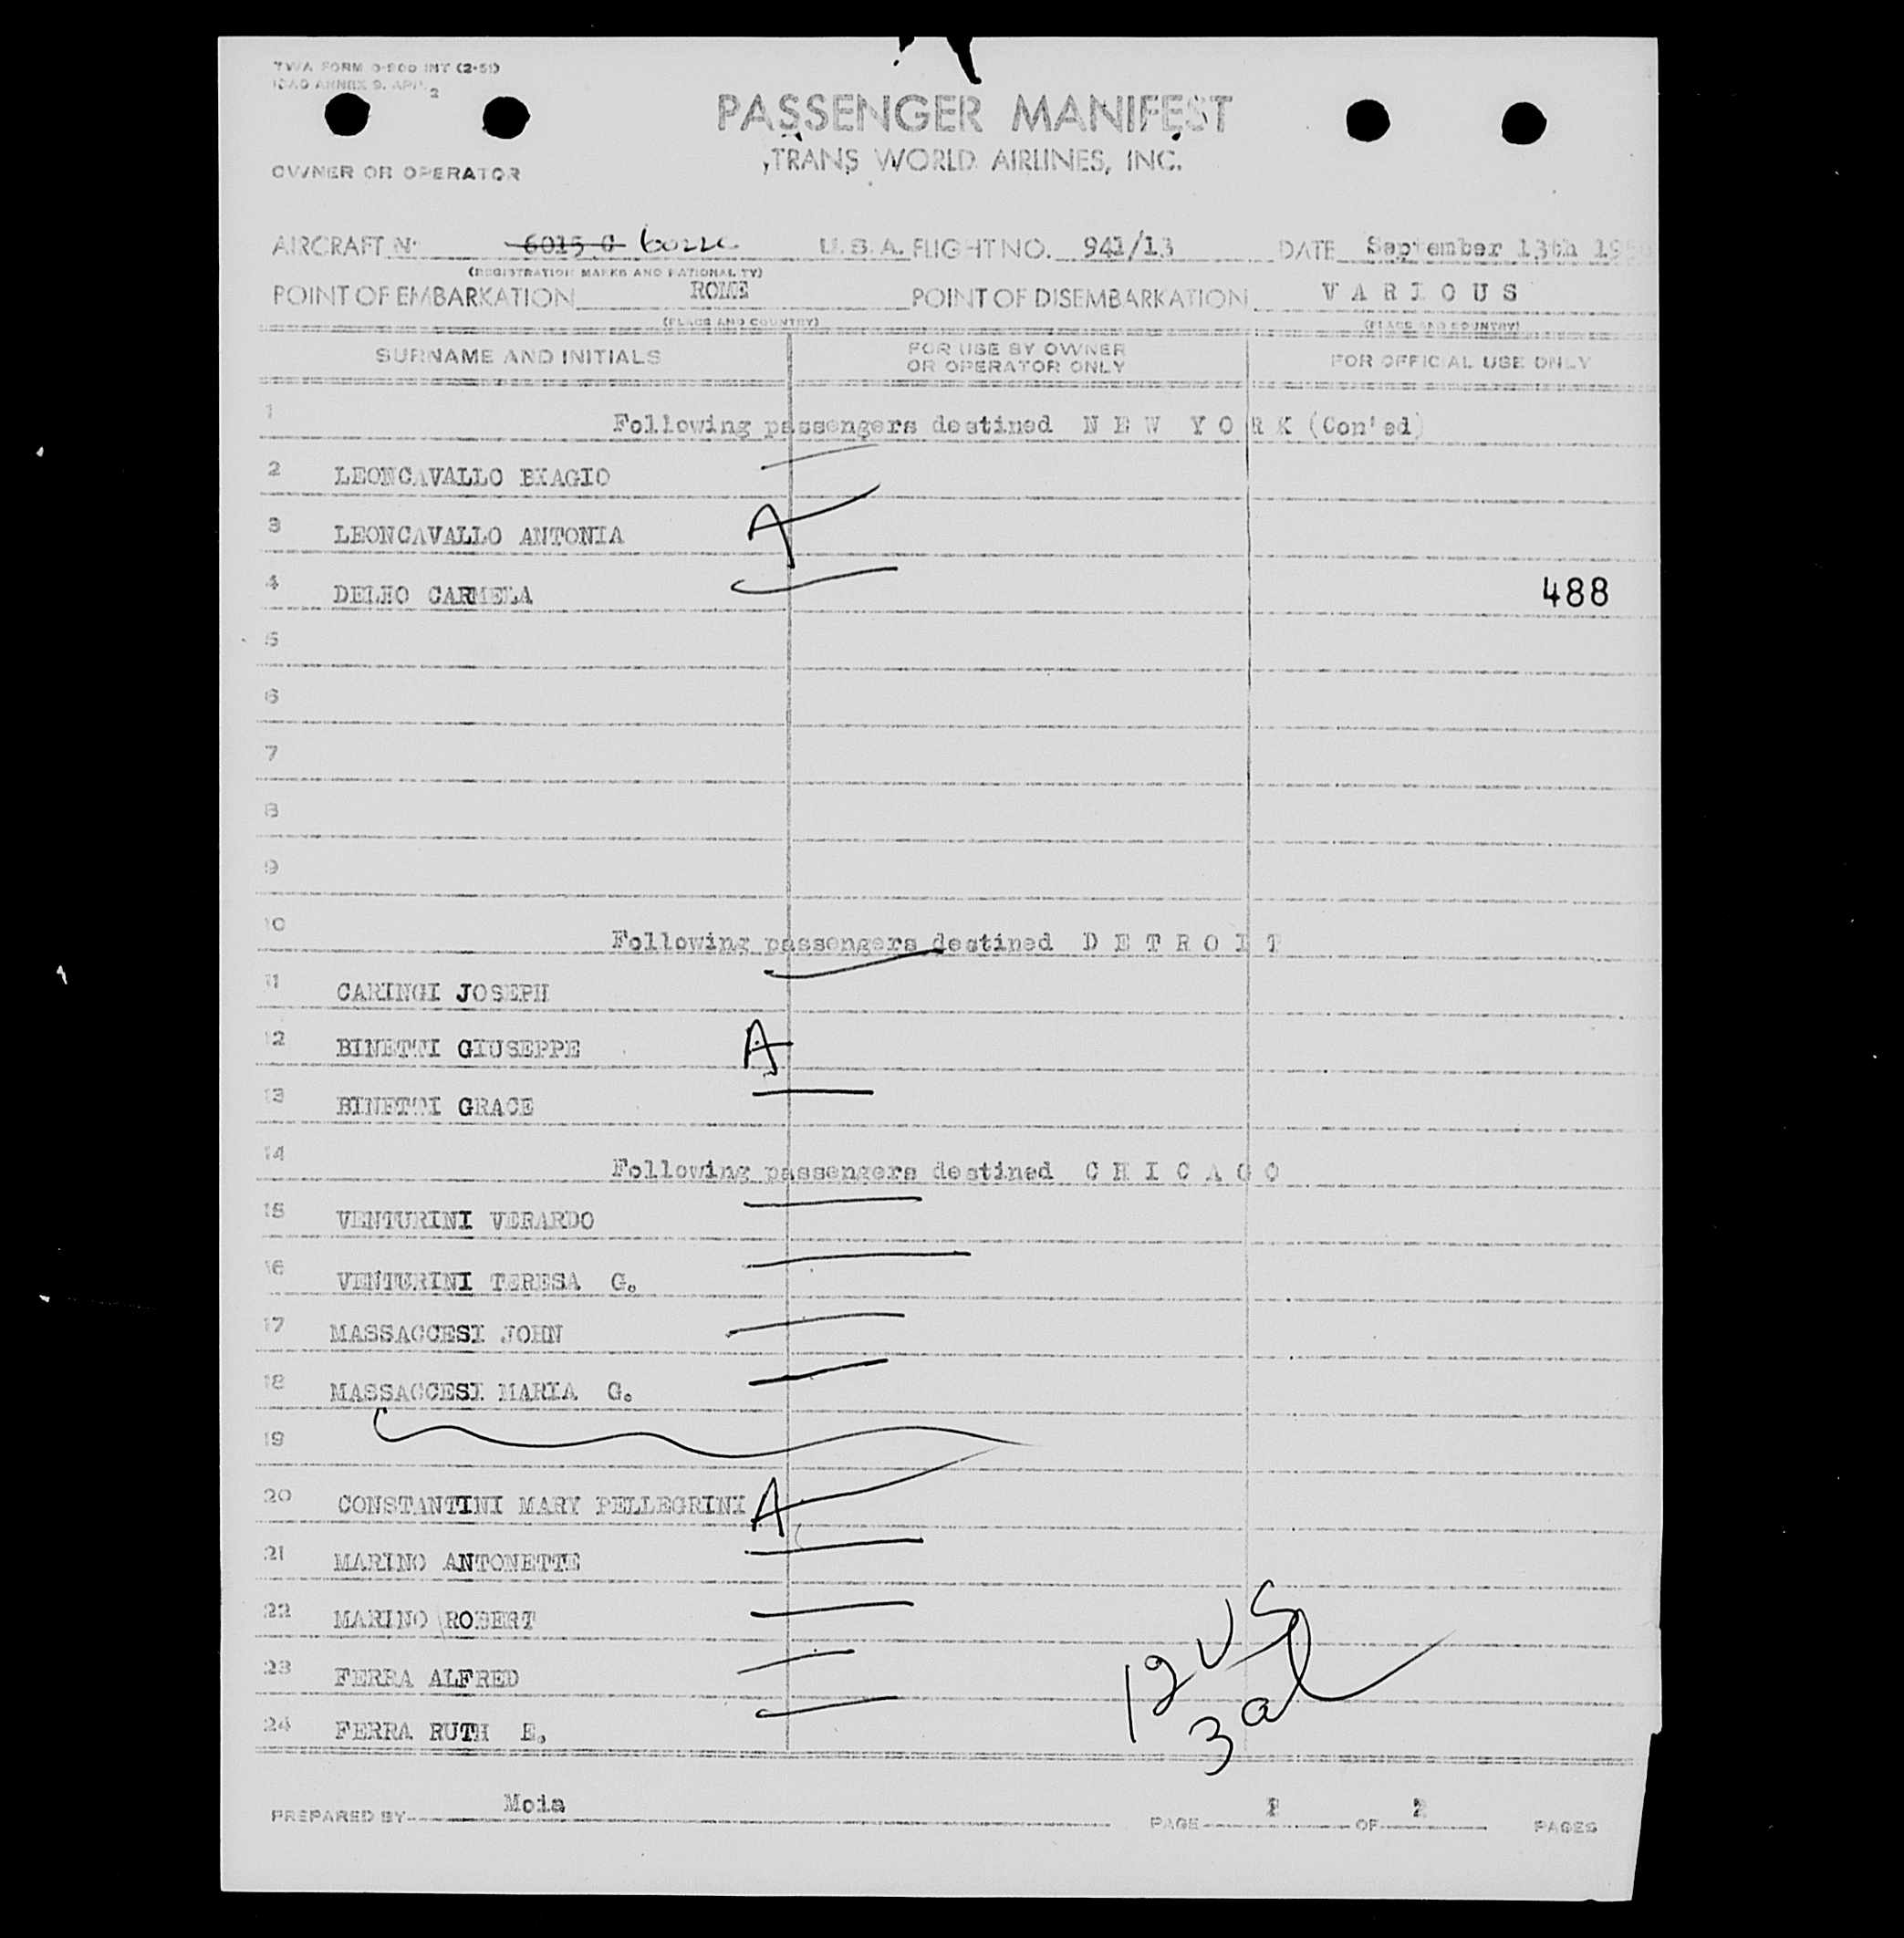 TWA FORM O-800 INT (2-51)
ICAO ANNEX 9, APP. 2
PASSENGER MANIFEST
TRANS WORLD AIRLINES, INC.
OWNER OR OPERATOR
AIRCRAFT Nº 6015 C U. S. A. FLIGHT NO. 941/13 DATE September 13th
(REGISTRATION MARKS AND NATIONALITY)
POINT OF EMBARKATION ROME POINT OF DISEMBARKATION V A R I O U S
(PLACE AND COUNTRY) (PLACE AND COUNTRY)
SURNAME AND INITIALS FOR USE BY OWNER OR OPERATOR ONLY FOR OFFICIAL USE ONLY
1 Following passengers destined N E W Y O R K (Con'ed)
2 LEONCAVALLO BIAGIO
3 LEONCAVALLO ANTONIA A
4 CARMELA 488
5
6
7
8
9
10 Following passengers destined D E T R O I T
11 CARINGI JOSEPH
12 BINETTI GIUSEPPE A
13 BINETTI GRACE
14 Following passengers destined C H I C A G O
15 VENTURINI VERARDO
16 VENTURINI TERESA G.
17 MASSACCESI JOHN
18 MASSACCESI MARIA G.
19
20 CONSTANTINI MARY PELLEGRINI A
21 MARINO ANTONETTE
22 MARINO ROBERT
23 FERRA ALFRED
24 FERRA RUTH E.
12 US
3 al
PREPARED BY Moia PAGE 2 OF 2 PAGES